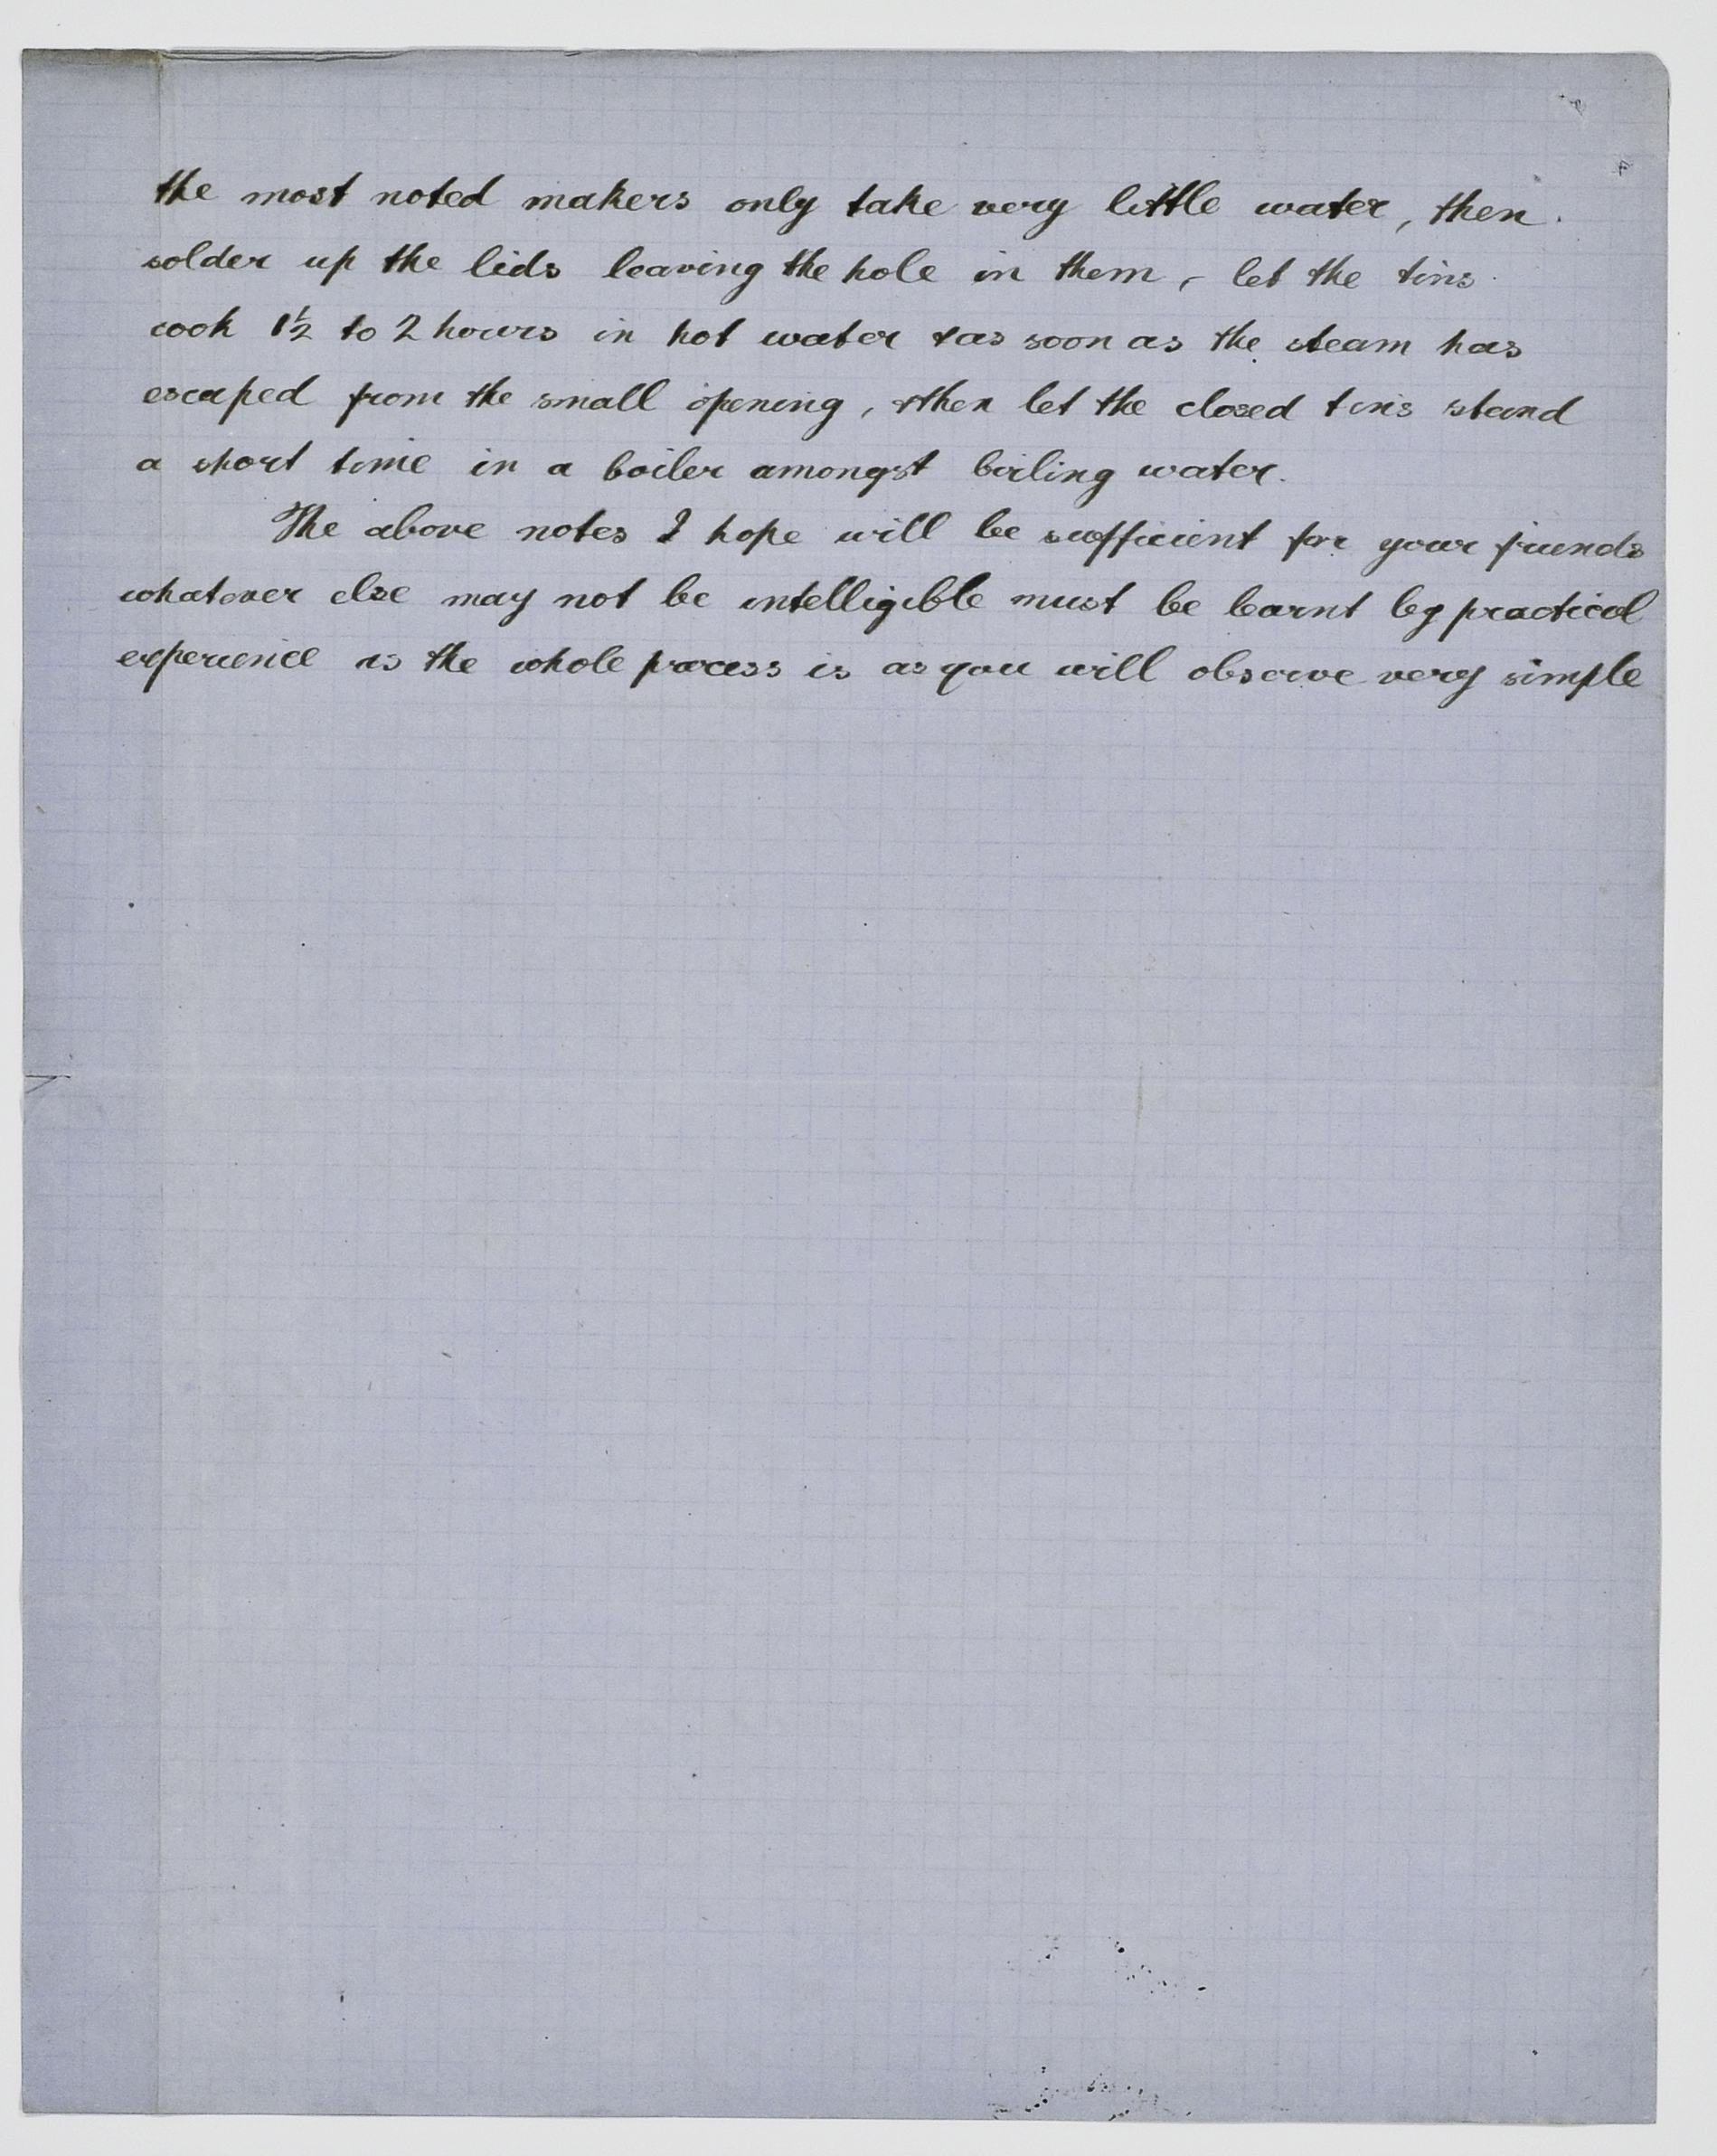 the most noted makers only take very little water, then
solder up the lids leaving the hole in them, let the tins
cook 1½ to 2 hours in hot water & as soon as the steam has
escaped from the small opening, & then let the closed tins stand
a short time in a boiler amongst boiling water.
The above notes I hope will be sufficient for your friends
whatever else may not be intelligible must be learnt by practical
experience as the whole process is as you will observe very simple